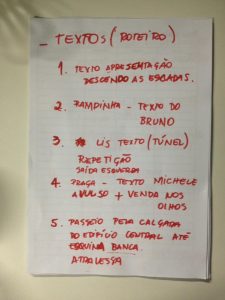 - TEXTOS (ROTEIRO)
1. TEXTO APRESENTAÇÃO
DESCENDO AS ESCADAS.
2. RAMPINHA - TEXTO DO
BRUNO
3. LIS TEXTO (TÚNEL)
REPETIÇÃO
SAÍDA ESQUERDA
4. PRAÇA - TEXTO MICHELE
AVULSO + VENDA NOS
OLHOS
5. PASSEIO PELA CALÇADA
DO EDIFÍCIO CENTRAL ATÉ
ESQUINA BANCA.
ATRAVESSA